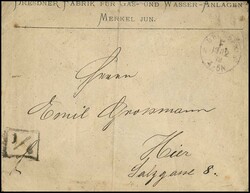 Dresdner Fabrik für Gas- und Wasser-Anlagen
Merkel jun.
Herrn
Emil Grossmann
Hier
Salzgasse 8.